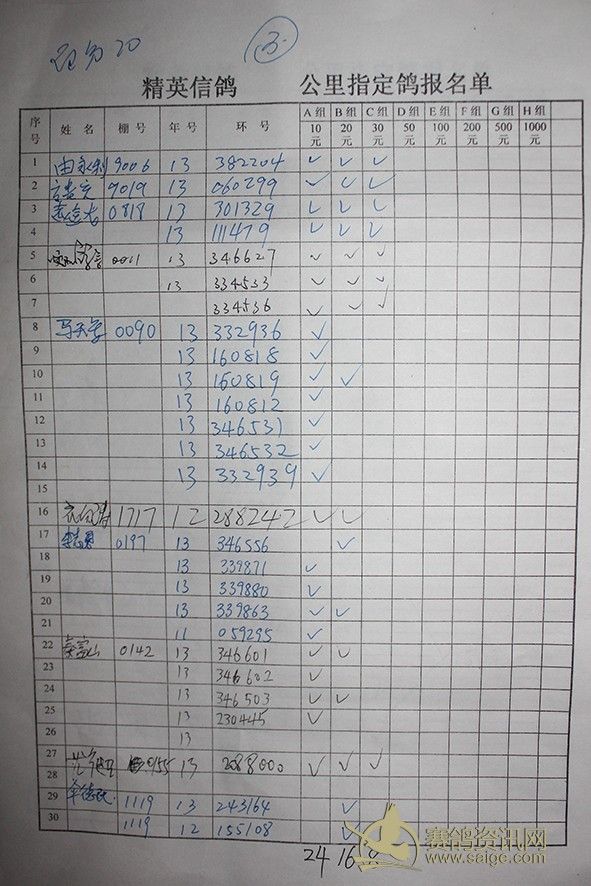 20 3
精英信鸽 公里指定鸽报名单
序号 姓名 棚号 年号 环号 A组10元 B组20元 C组30元 D组50元 E组100元 F组200元 G组500元 H组1000元
1 由永利 9006 13 382204 ✓ ✓ ✓
2 9019 13 060299 ✓ ✓ ✓
3 0818 13 301329 ✓ ✓ ✓
4 13 111479 ✓ ✓ ✓
5 0011 13 346627 ✓ ✓ ✓
6 13 334533 ✓ ✓ ✓
7 334536 ✓ ✓ ✓
8 0090 13 332936 ✓
9 13 160818 ✓
10 13 160819 ✓ ✓
11 13 160812 ✓
12 13 346531 ✓
13 13 346532 ✓
14 13 332939 ✓
15
16 1717 12 288242 ✓ ✓
17 0197 13 346556 ✓
18 13 339871 ✓
19 13 339880 ✓
20 13 339863 ✓ ✓
21 11 059295 ✓
22 0142 13 346601 ✓ ✓
23 13 346602 ✓
24 13 346503 ✓ ✓
25 13 230445 ✓
26 13
27 0155 13 208800 ✓ ✓ ✓
28
29 1119 13 243164 ✓
30 1119 12 155108 ✓
24 16
赛鸽资讯网
www.saigc.com